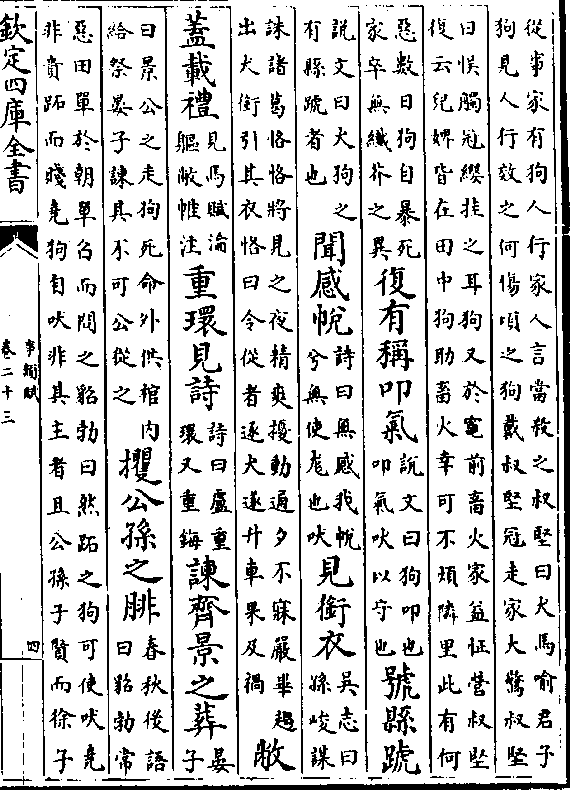 從事家有狗人行家人言當殺之叔堅曰犬馬喻君子
狗見人行效之何傷頃之狗戴叔堅冠走家大驚叔堅
曰悞觸冠纓挂之耳狗又於竈前畜火家益怔營叔堅
復云兒婢皆在田中狗助畜火幸可不煩隣里此有何
惡數日狗自暴死
家卒無纎芥之異
復有稱叩氣
說文曰狗叩也
叩氣吠以守也
號縣蹏
說文曰犬狗之
有縣蹏者也
聞感帨
詩曰無感我帨
兮無使尨也吠
見銜衣
吳志曰
孫峻誅
誅諸葛恪恪將見之夜精爽擾動通夕不寐嚴畢趨
出犬銜引其衣恪曰令從者逐犬遂升車果及禍
敝
蓋載禮
見馬賦淪
軀敝帷注
重環見詩
詩曰盧重
環又重鋂
諫齊景之葬
晏
子
曰景公之走狗死命外供棺内
給祭晏子諫其不可公從之
攫公孫之腓
春秋後語
曰貂勃常
惡田單於朝單召而問之貂勃曰然跖之狗可使吠堯
非貴跖而賤堯狗自吠非其主者且公孫子賢而徐子
欽定四庫全書
事類賦
卷二十三
四